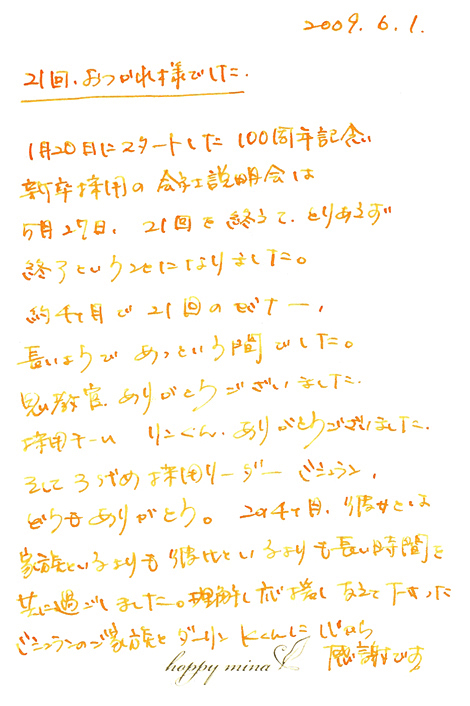 2009. 6. 1.
21回、おつかれ様でした.
1月20日にスタートした 100周年記念
新卒採用の 会社説明会は
5月27日、21回を終えて、とりあえず
終了ということになりました。
約4ヶ月で 21回のセミナー、
長いようで あっという間でした。
鬼教官 ありがとうございました.
採用チーム リンくん、ありがとうございました.
そして 採用リーダー ビジュラン、
どうもありがとう。 この4ヶ月、彼女とは
家族といるよりも 彼氏といるよりも長い時間を
共に過ごしました。理解し 応援し 支えて下さった
ビジュランのご家族と ダーリン Kくんに 心から
感謝です
happy mina